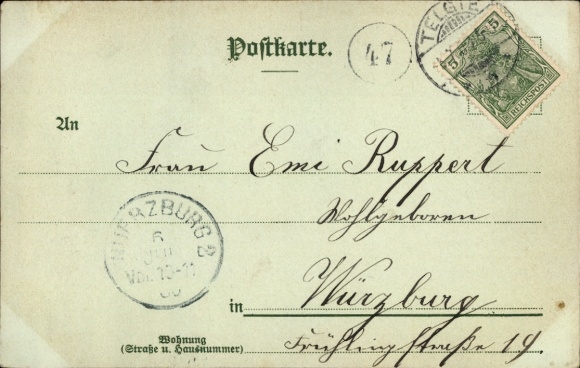 Postkarte.
47
TELGTE
5 5
REICHSPOST
An
Frau Emi Ruppert
Wohlgeboren
WUERZBURG 2
6
Vor. 10-11
00
in Würzburg
Wohnung
(Straße u. Hausnummer)
Frühlingstraße 19.